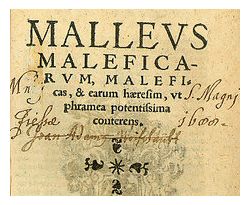 MALLEVS
MALEFICA-
RVM, MALEFI-
cas, & earum hæresim, vt
phramea potentissima
conterens.
S. Magni
1600.